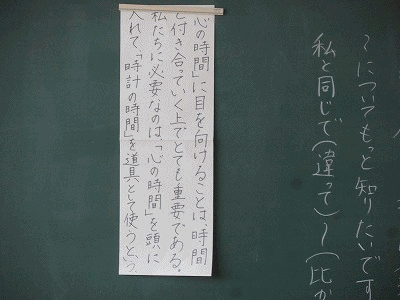 〜についてもっと知りたいです
私と同じで(違って)〜(比
心の時間」に目を向けることは、時間
と付き合っていく上でとても重要である。
私たちに必要なのは、「心の時間」を頭に
入れて、「時計の時間」を道具として使うという